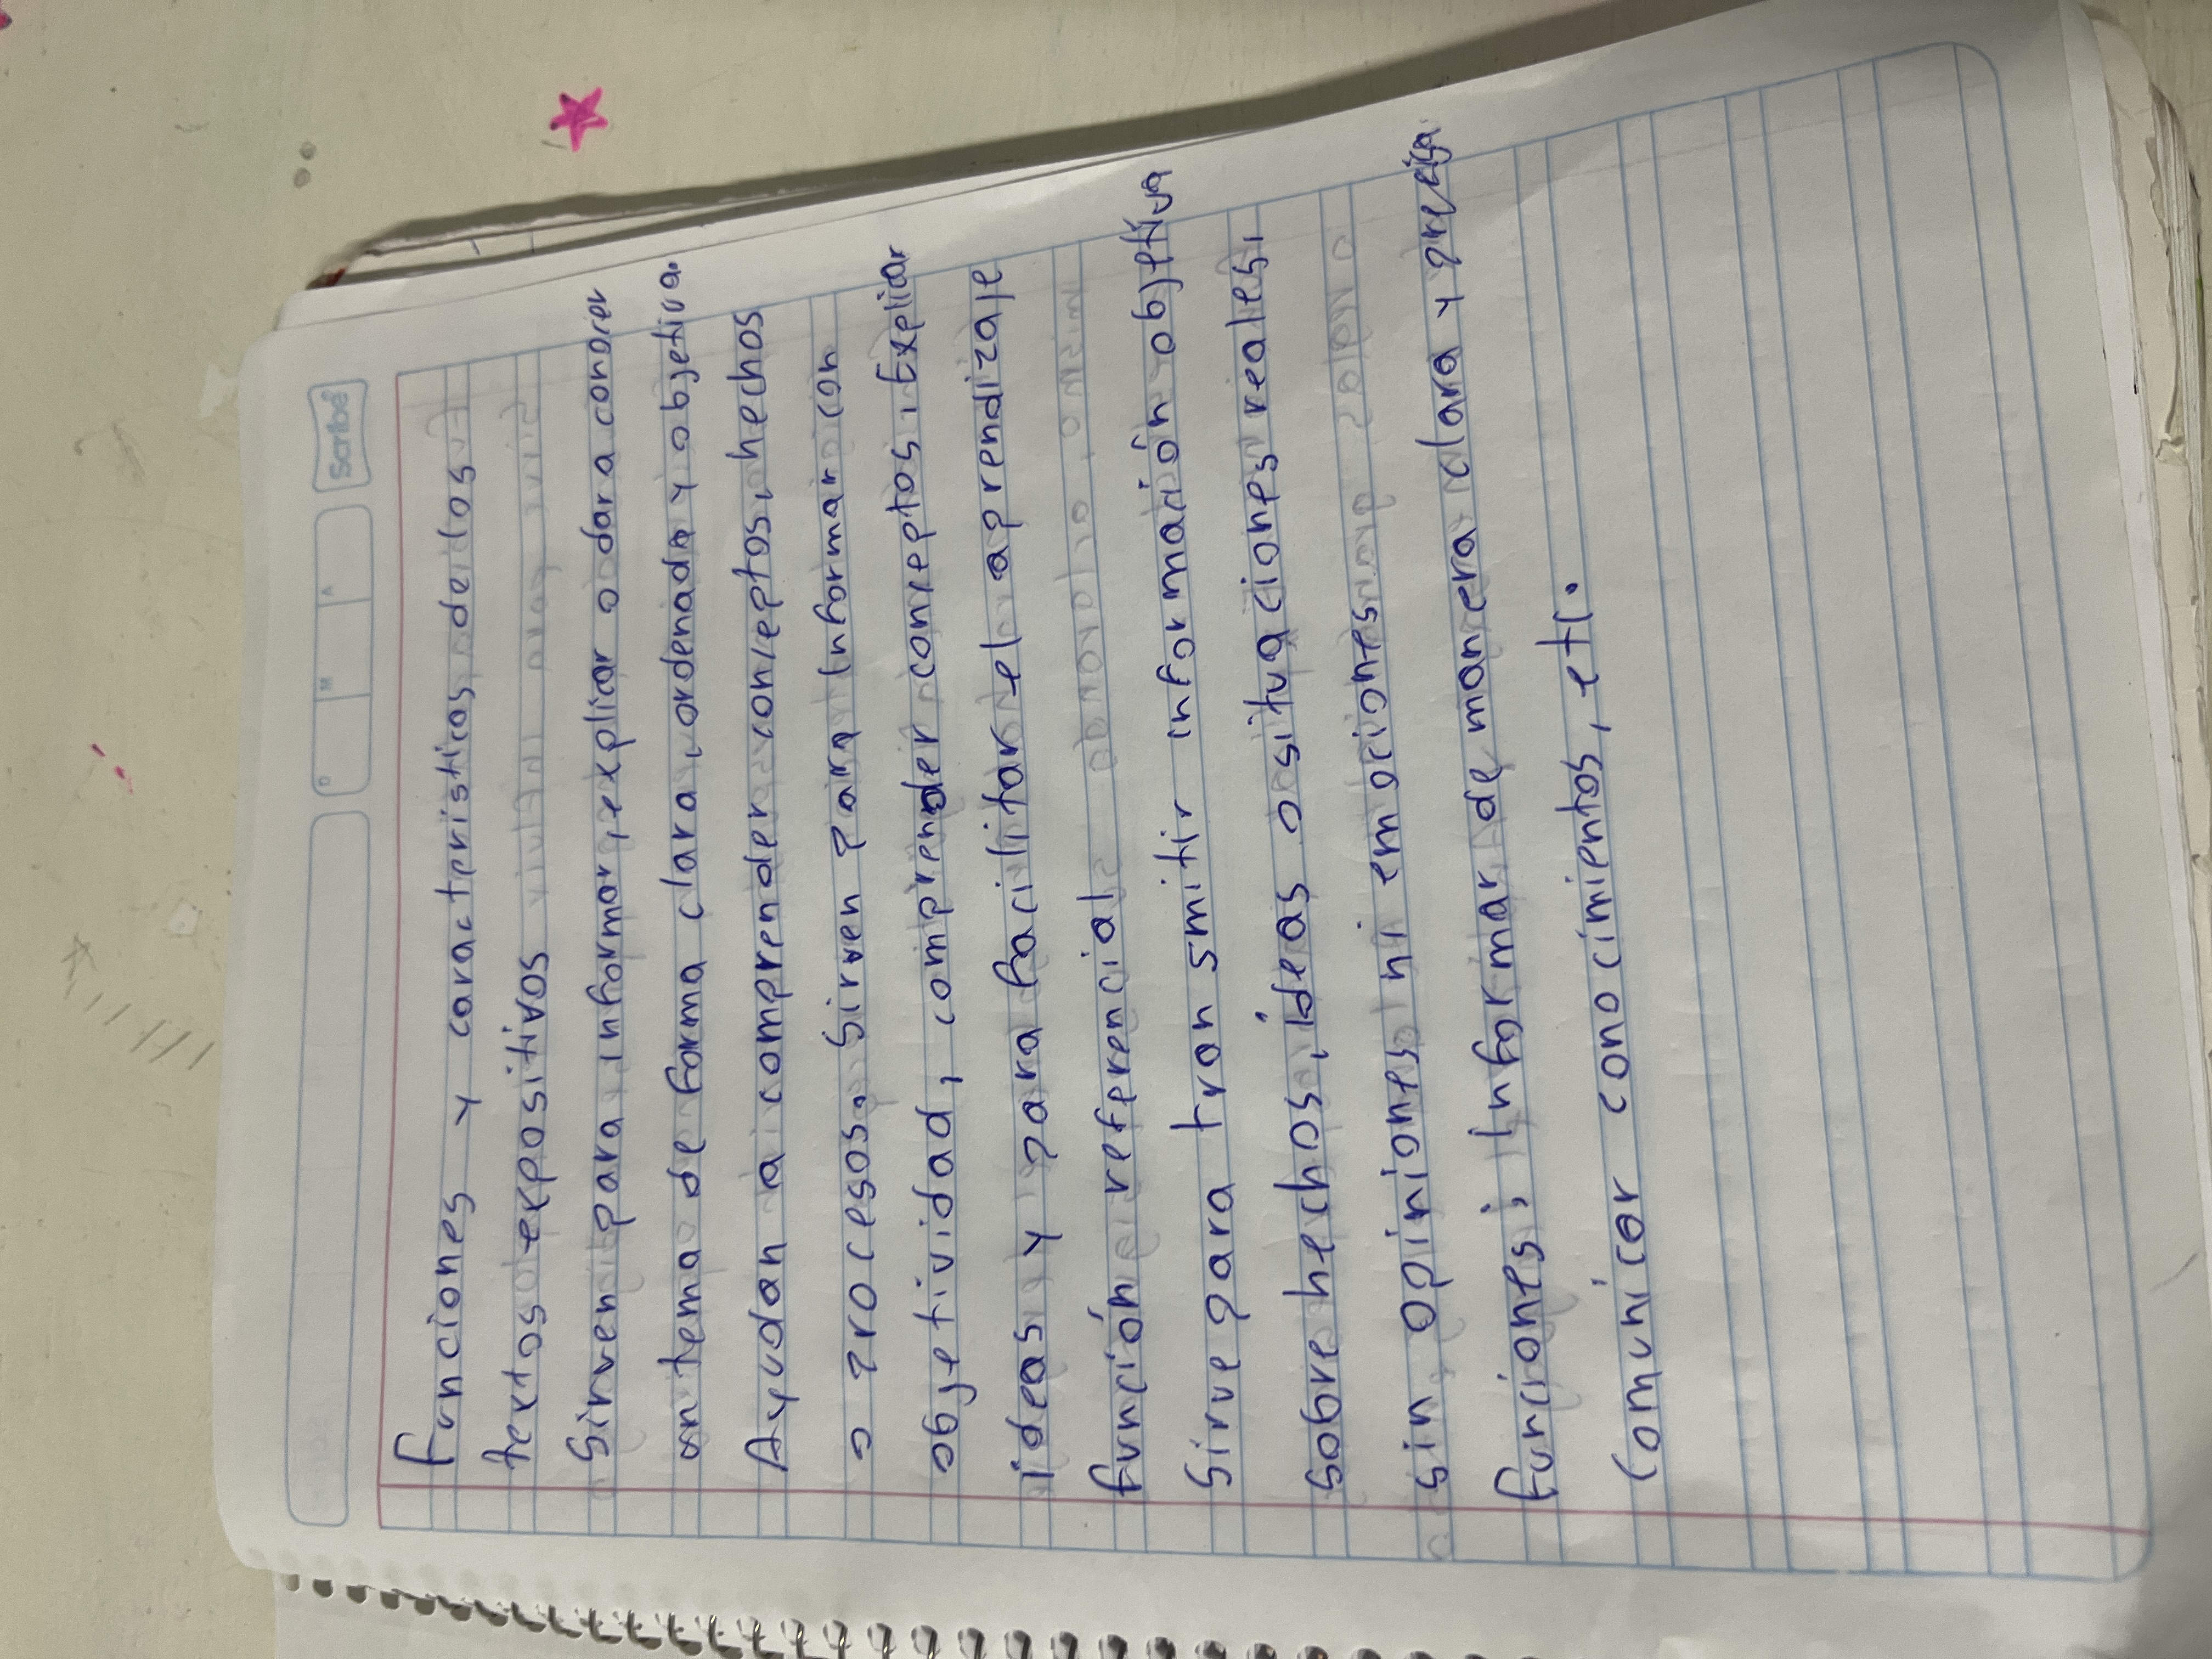 Scribe
D M A
Funciones y caracteristicas de los
textos expositivos
Sirven para informar, explicar o dar a conocer
un tema de forma clara, ordenada y objetiva.
Ayudan a comprender conceptos, hechos
o procesos. Sirven para informar con
objetividad, comprender conceptos. Expliar
ideas y para facilitar el aprendizaje
función referencial
Sirve para transmitir información objetiva
sobre hechos, ideas o situaciones reales,
sin opiniones ni emociones
funciones: Informar de manera clara y precisa
Comunicar conocimientos, etc.